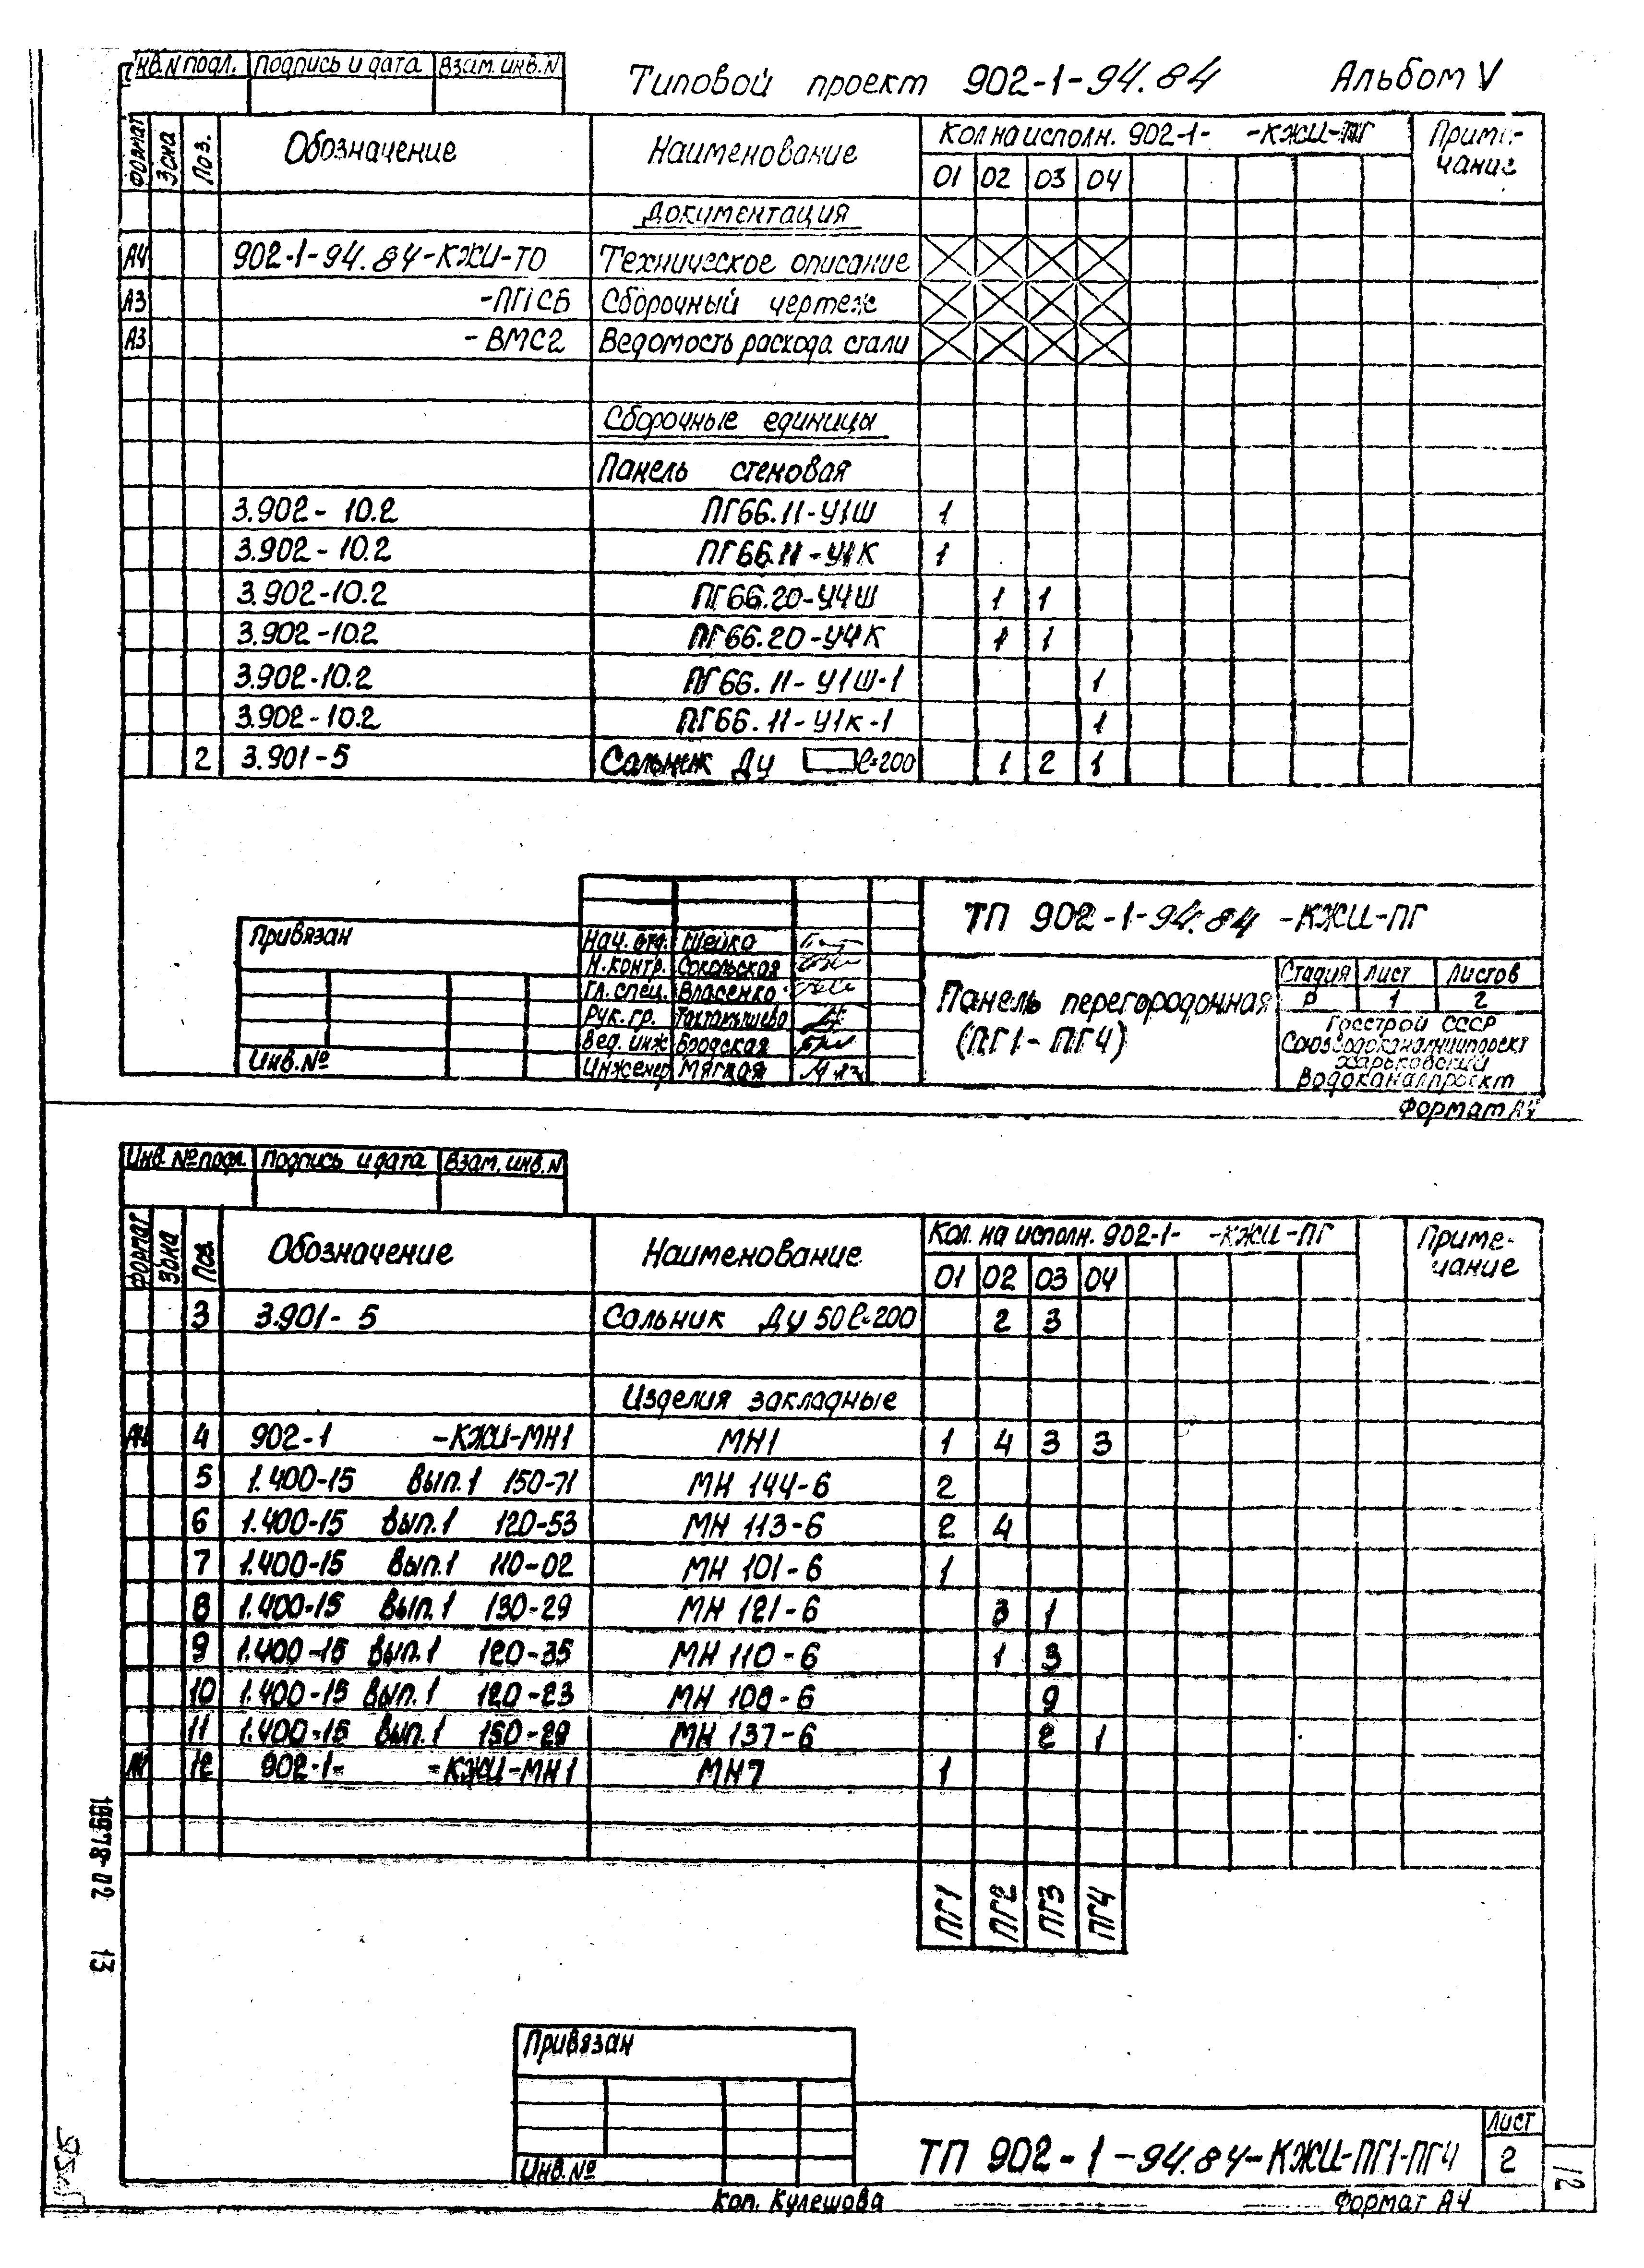 Инв. N подл. Подпись и дата Взам. инв. N
Типовой проект 902-1-94.84 Альбом V
Формат Зона Поз. Обозначение Наименование Кол на исполн. 902-1- -КЖИ-ПГ Приме-
чание
01 02 03 04
Документация
А4 902-1-94.84-КЖИ-ТО Техническое описание
А3 -ПГ1СБ Сборочный чертеж
А3 -ВМС2 Ведомость расхода стали
Сборочные единицы
Панель стеновая
3.902-10.2 ПГ66.11-У1Ш 1
3.902-10.2 ПГ66.11-У1К 1
3.902-10.2 ПГ66.20-У4Ш 1 1
3.902-10.2 ПГ66.20-У4К 1 1
3.902-10.2 ПГ66.11-У1Ш-1 1
3.902-10.2 ПГ66.11-У1к-1 1
2 3.901-5 Сальник Ду ℓ=200 1 2 1
ТП 902-1-94.84-КЖИ-ПГ
Привязан
Нач. отд. Шейко
Н.контр. Сокольская
Гл. спец. Власенко
Рук. гр.
Вед. инж Бродская
Инженер Мягкая
Инв. №
Панель перегородочная
(ПГ1-ПГ4)
Стадия Лист Листов
Р 1 2
Госстрой СССР
Союзводоканалниипроект
Харьковский
Водоканалпроект
Формат А4
Инв. № подл. Подпись и дата Взам. инв. N
Формат Зона Поз. Обозначение Наименование Кол. на исполн. 902-1- -КЖИ-ПГ Приме-
чание
01 02 03 04
3 3.901-5 Сальник Ду 50 ℓ=200 2 3
Изделия закладные
А4 4 902-1 -КЖИ-МН1 МН1 1 4 3 3
5 1.400-15 Вып.1 150-71 МН 144-6 2
6 1.400-15 Вып.1 120-53 МН 113-6 2 4
7 1.400-15 Вып.1 110-02 МН 101-6 1
8 1.400-15 Вып.1 130-29 МН 121-6 3 1
9 1.400-15 Вып.1 120-35 МН 110-6 1 3
10 1.400-15 Вып.1 120-23 МН 108-6 9
11 1.400-15 Вып.1 150-29 МН 137-6 2 1
А4 12 902-1- -КЖИ-МН1 МН7 1
ПГ1 ПГ2 ПГ3 ПГ4
19978-02 13
Привязан
Инв. №
ТП 902-1-94.84-КЖИ-ПГ1-ПГ4
Лист
2
12
Коп. Кулешова Формат А4